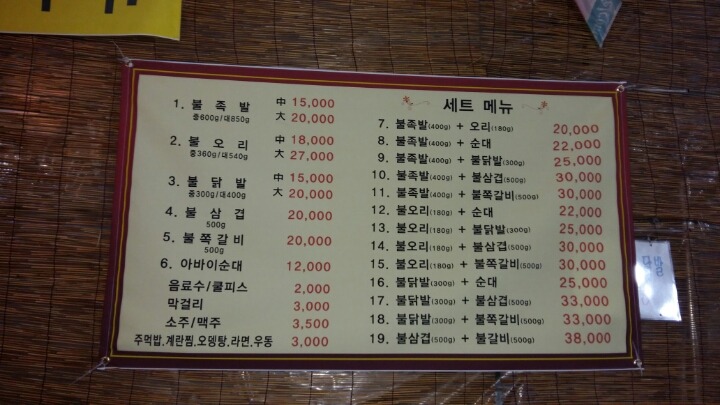 1. 불 족 발 中 15,000
중600g/대850g 大 20,000
2. 불 오 리 中 18,000
중360g/대540g 大 27,000
3. 불 닭 발 中 15,000
중300g/대400g 大 20,000
4. 불 삼 겹 20,000
500g
5. 불 쪽 갈 비 20,000
500g
6. 아바이순대 12,000
음료수/쿨피스 2,000
막걸리 3,000
소주/맥주 3,500
주먹밥,계란찜,오뎅탕,라면,우동 3,000
세트 메뉴
7. 불족발(400g) + 오리(180g) 20,000
8. 불족발(400g) + 순대 22,000
9. 불족발(400g) + 불닭발(300g) 25,000
10. 불족발(400g) + 불삼겹(500g) 30,000
11. 불족발(400g) + 불쪽갈비(500g) 30,000
12. 불오리(180g) + 순대 22,000
13. 불오리(180g) + 불닭발(300g) 25,000
14. 불오리(180g) + 불삼겹(500g) 30,000
15. 불오리(180g) + 불쪽갈비(500g) 30,000
16. 불닭발(300g) + 순대 25,000
17. 불닭발(300g) + 불삼겹(500g) 33,000
18. 불닭발(300g) + 불쪽갈비(500g) 33,000
19. 불삼겹(500g) + 불갈비(500g) 38,000